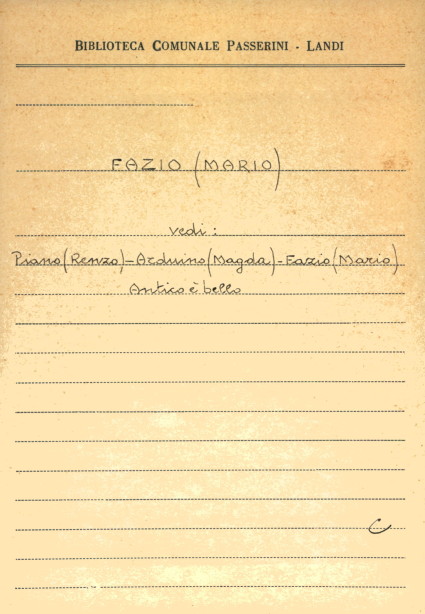 BIBLIOTECA COMUNALE PASSERINI - LANDI
FAZIO (MARIO)
vedi:
Piano (Renzo) - Arduino (Magda) - Fazio (Mario)
Antico è bello
C